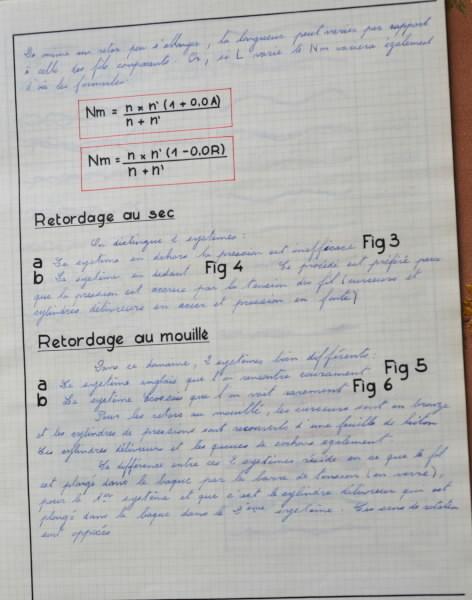 De même un retor peu s'allonger, la longueur peut variée par rapport
à celle des fils composants. Or, si L varie le Nm variera également
d'où les formules:
Nm = n x n' (1 + 0,0A) / n + n'
Nm = n x n' (1 - 0,0R) / n + n'
Retordage au sec
On distingue 2 systèmes:
a Le système en dehors la pression est inefficace Fig 3
b Le système en dedans Fig 4 Ce procédé est préféré parce
que la pression est accrue par la tension du fil (curseurs et
cylindres délivreurs en acier et pression en fonte)
Retordage au mouillé
Dans ce domaine, 2 systèmes bien différents:
a Le système anglais que l'on rencontre couramment Fig 5
b Le système écossais que l'on voit rarement Fig 6
Pour les retors au mouillé, les curseurs sont en bronze
et les cylindres de pressions sont recouverts d'une feuille de laiton
Les cylindres délivreurs et les également
La différence entre ces 2 systèmes réside en ce que le fil
est plongé dans la bague par la barre de tension (en verre),
pour le 1er système et que c'est le cylindre délivreur qui est
plongé dans la bague dans le 2ème système. Les sens de rotation
sont opposés